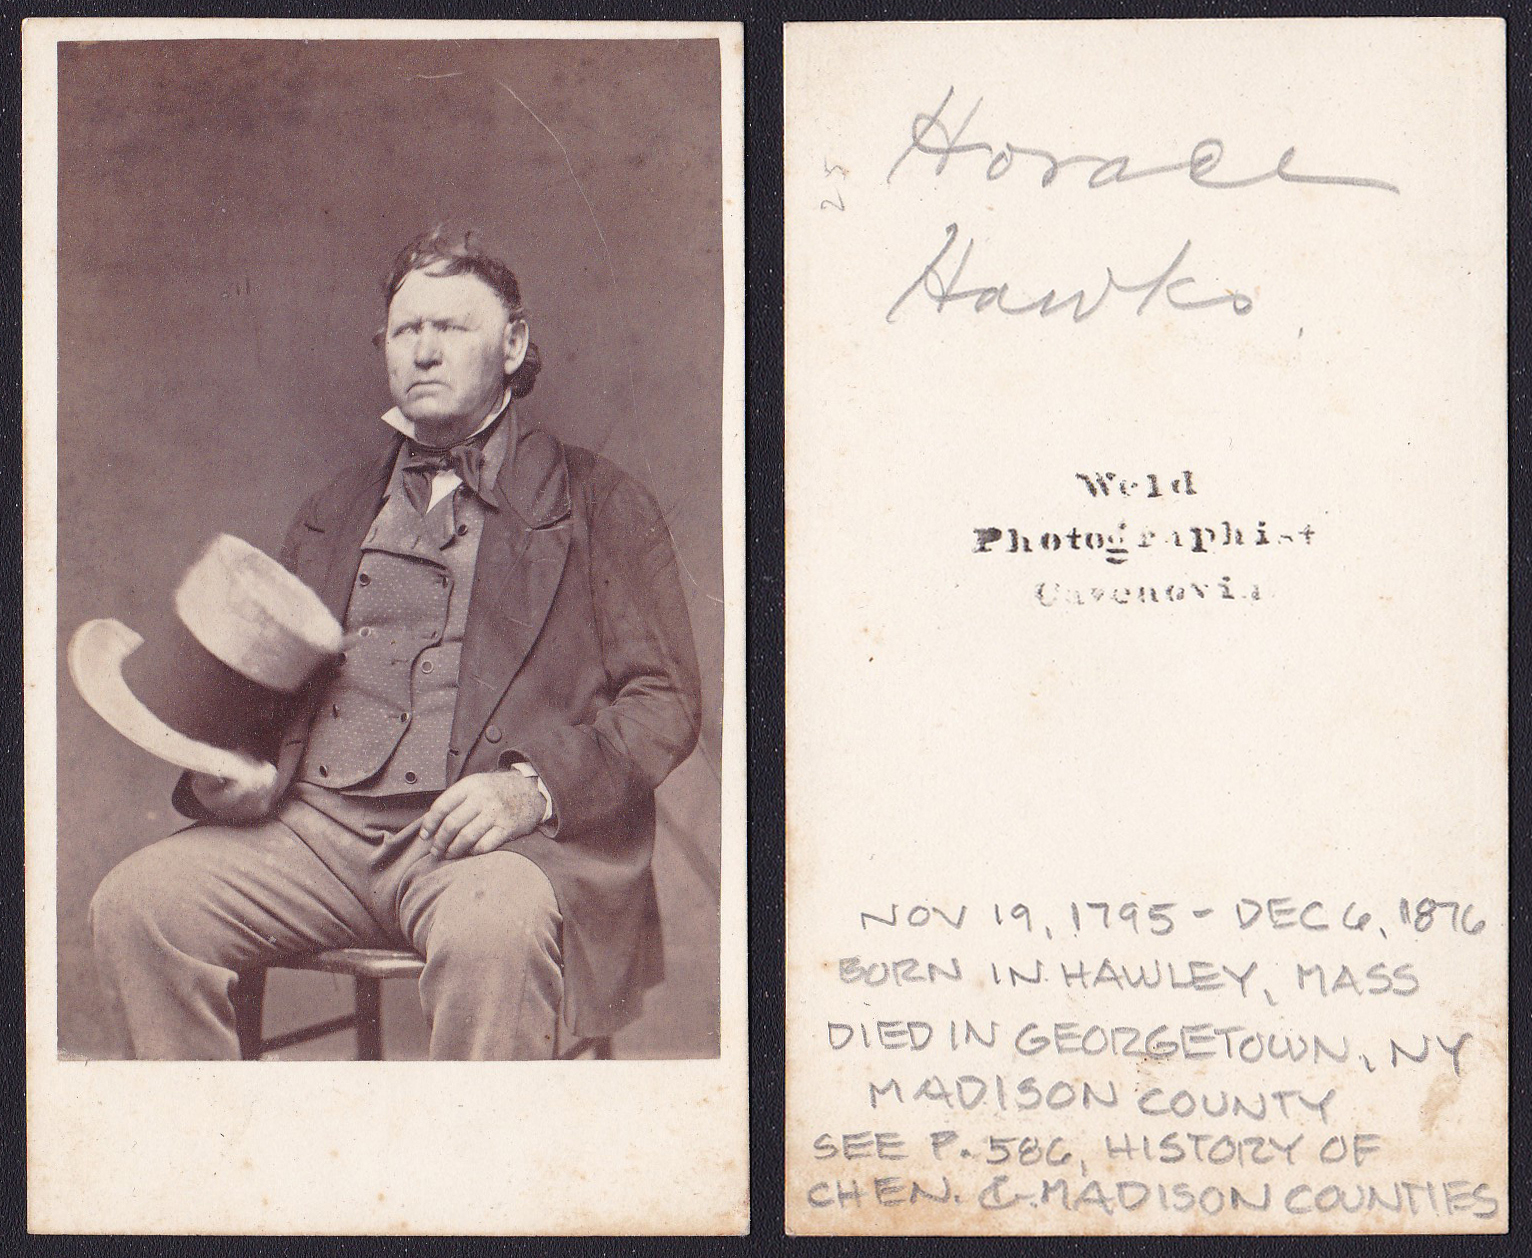 25
Horace
Hawks
Weld
Photographist
Cazenovia
NOV 19, 1795 - DEC 6, 1876
BORN IN HAWLEY, MASS
DIED IN GEORGETOWN, NY
MADISON COUNTY
SEE P. 586, HISTORY OF
CHEN. & MADISON COUNTIES